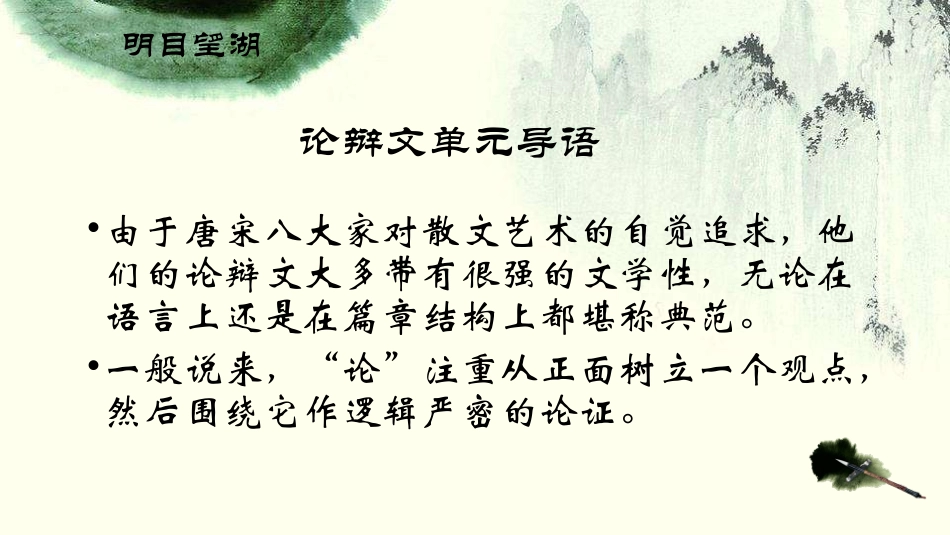 明目望湖
论辩文单元导语
•由于唐宋八大家对散文艺术的自觉追求，他
们的论辩文大多带有很强的文学性，无论在
语言上还是在篇章结构上都堪称典范。
•一般说来，“论”注重从正面树立一个观点，
然后围绕它作逻辑严密的论证。